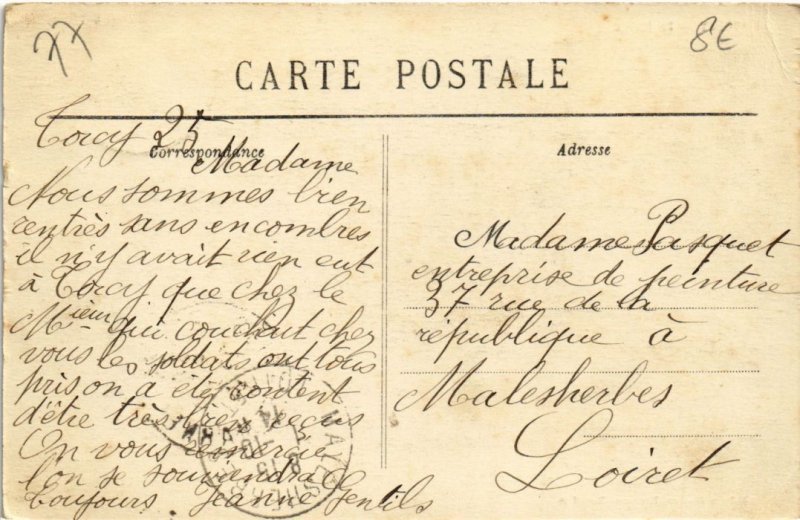 77
8€
CARTE POSTALE
Correspondance
Adresse
Torcy 25
Madame
Nous sommes bien
rentrès sans encombres
il n'y avait rien eut
à Torcy que chez le
Mieur qui couchait chez
vous les soldats ont tous
pris on a etè content
d'être très bien reçus
On vous remercie
l'on se souviendra
toujours Jeanne Gentils
Madame Pasquet
entreprise de peinture
37 rue de la
république à
Malesherbes
Loiret